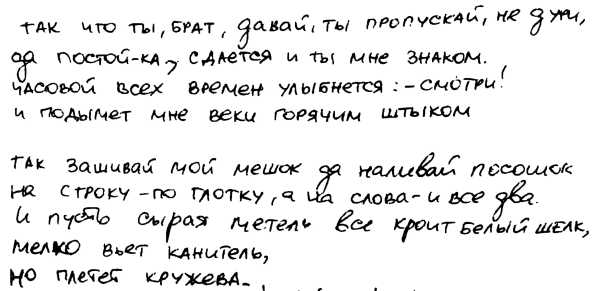 так что ты, брат, давай, ты пропускай, не дури,
да постой-ка, сдается и ты мне знаком.
часовой всех времен улыбнется: - смотри!
и подымет мне веки горячим штыком
так зашивай мой мешок да наливай посошок
на строку - по глотку, а на слова - и все два.
и пусть сырая метель все кроит белый шелк,
мелко вьет канитель,
но плетет кружева.